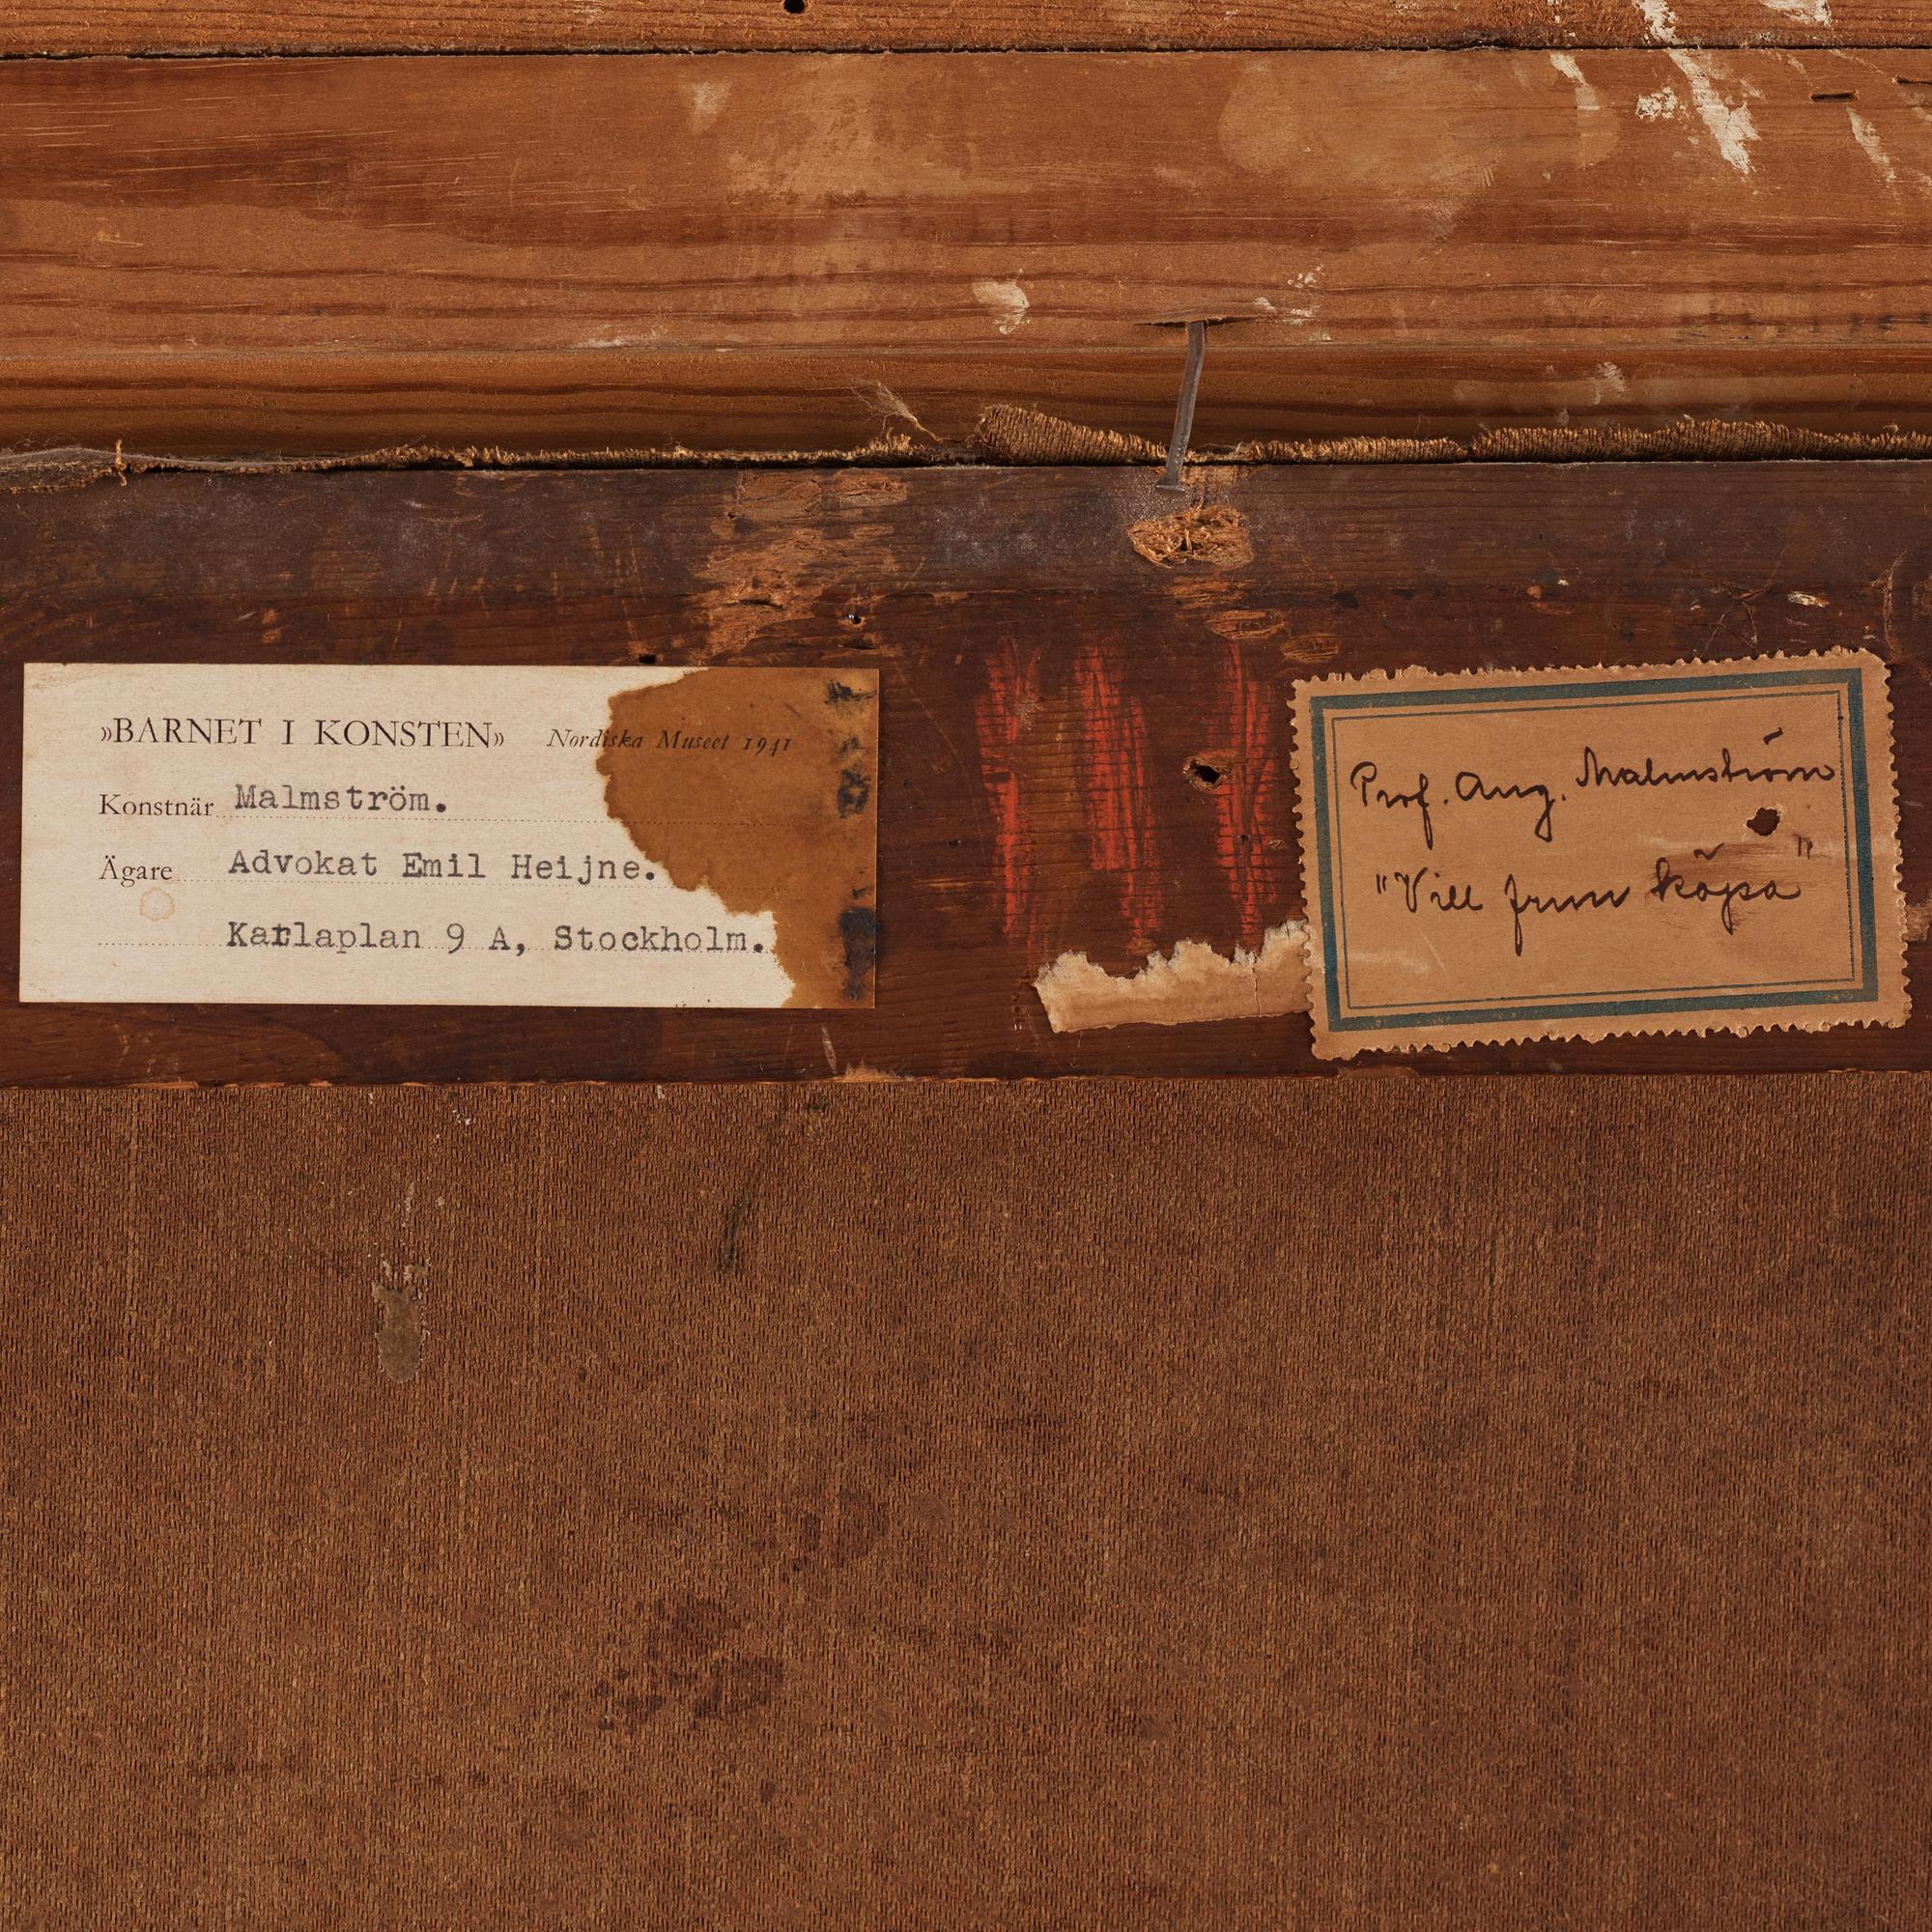 »BARNET I KONSTEN» Nordiska Museet 1941
Konstnär Malmström.
Ägare Advokat Emil Heijne.
Karlaplan 9 A, Stockholm.
Prof. Aug. Malmström
"Vill frun köpa"